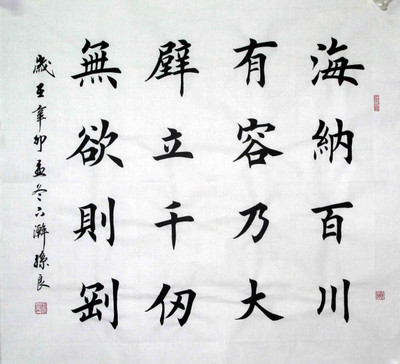 海納百川
有容乃大
壁立千仞
無欲則剛
歲在辛卯孟冬
孫良